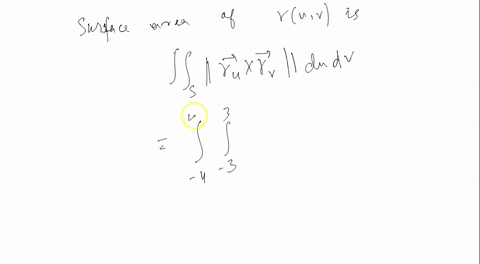 Surface area of r(u,v) is
∬_S ‖ r⃗_u × r⃗_v ‖ du dv
= ∫_{-4}^{v} ∫_{-3}^{3}